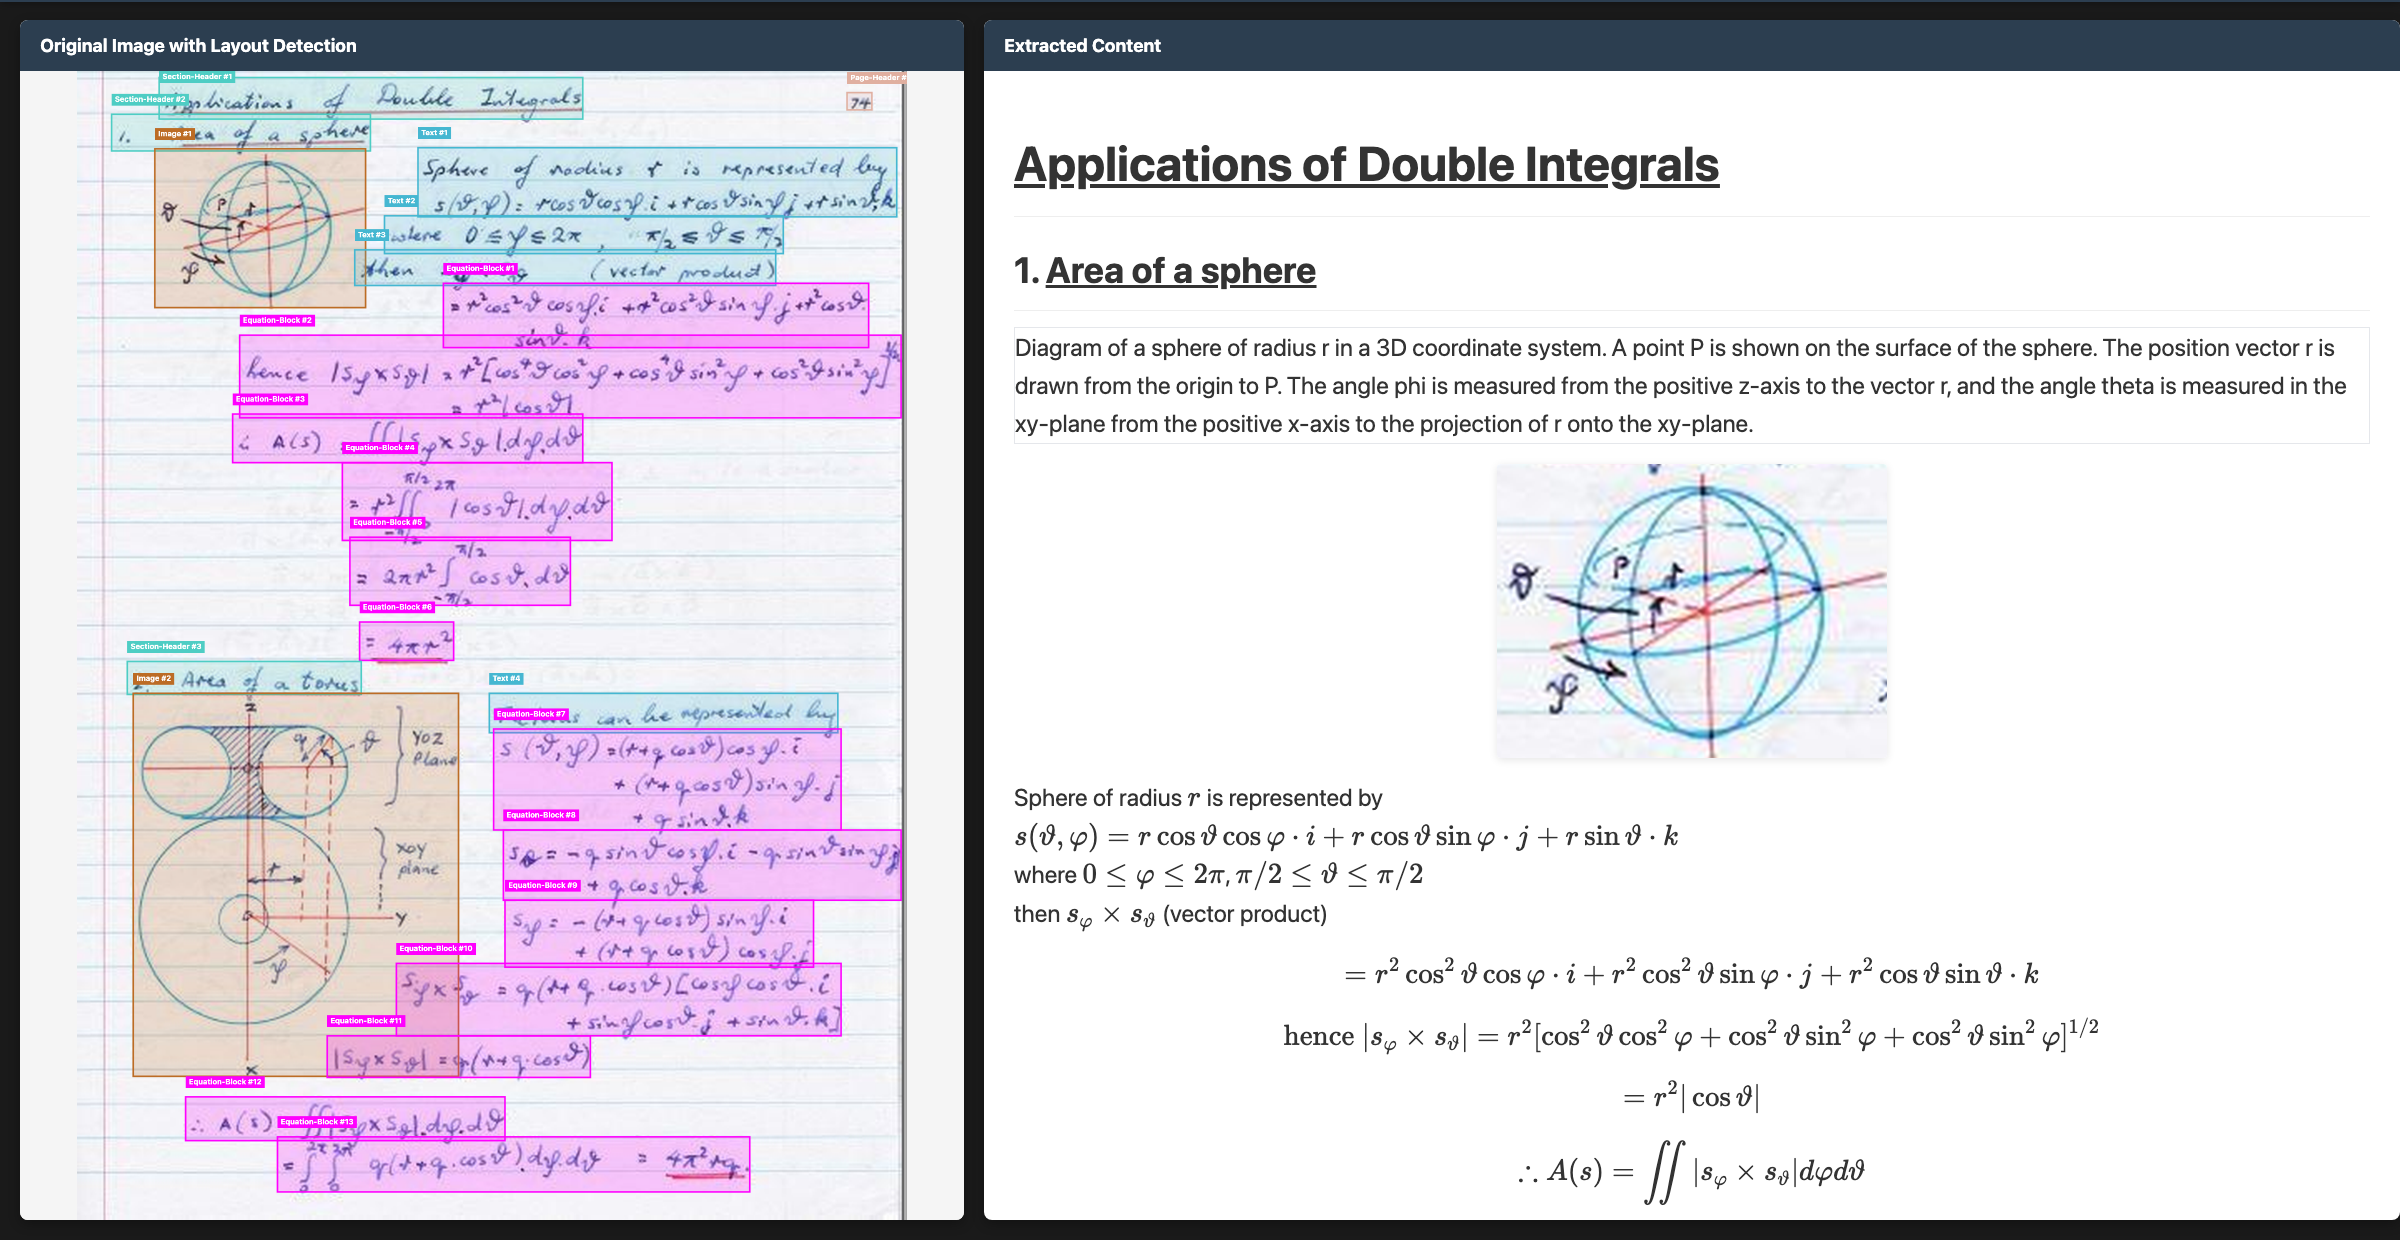 Original Image with Layout Detection
Section-Header #1
Applications of Double Integrals
Page-Header #
74
Section-Header #2
1. Area of a sphere
Image #1
ϑ P r φ
Text #1
Sphere of radius r is represented by
s(ϑ,φ) = rcosϑcosφ.i + rcosϑsinφ.j + rsinϑ.k
Text #2
where 0 ≤ φ ≤ 2π, π/2 ≤ ϑ ≤ π/2
Text #3
then (vector product)
Equation-Block #1
= r²cos²ϑ cosφ.i + r²cos²ϑ sinφ.j + r²cosϑ.
sinϑ.k
Equation-Block #2
hence |Sφ x Sϑ| = r²[cos⁴ϑcos²φ + cos⁴ϑsin²φ + cos²ϑsin²φ]^1/2
= r²|cosϑ|
Equation-Block #3
∴ A(s) ∬|Sφ x Sϑ|.dφ.dϑ
Equation-Block #4
π/2 2π
= r²∬ |cosϑ|.dφ.dϑ
-π/2
Equation-Block #5
π/2
= 2πr² ∫ cosϑ.dϑ
-π/2
Equation-Block #6
= 4πr²
Section-Header #3
Area of a torus
Image #2
Z
q ϑ YOZ
Plane
r XOY
plane
Y
φ
X
Text #4
can be represented by
Equation-Block #7
s(ϑ,φ) = (r+q cosϑ)cosφ.i
+ (r+q cosϑ)sinφ.j
+ q sinϑ.k
Equation-Block #8
Sϑ = -q sinϑ cosφ.i - q sinϑ sinφ.j
+ q cosϑ.k
Equation-Block #9
Sφ = -(r+q cosϑ) sinφ.i
+ (r+q cosϑ) cosφ.j
Equation-Block #10
Sφ x Sϑ = q(r+q.cosϑ)[cosφ cosϑ.i
+ sinφ cosϑ.j + sinϑ.k]
Equation-Block #11
|Sφ x Sϑ| = q(r+q.cosϑ)
Equation-Block #12
∴ A(s) ∬|Sφ x Sϑ|.dφ.dϑ
Equation-Block #13
2π 2π
= ∫ ∫ q(r+q.cosϑ).dφ.dϑ = 4π²rq.
0 0
Extracted Content
Applications of Double Integrals
1. Area of a sphere
Diagram of a sphere of radius r in a 3D coordinate system. A point P is shown on the surface of the sphere. The position vector r is
drawn from the origin to P. The angle phi is measured from the positive z-axis to the vector r, and the angle theta is measured in the
xy-plane from the positive x-axis to the projection of r onto the xy-plane.
ϑ P r φ
Sphere of radius r is represented by
s(ϑ, φ) = r cos ϑ cos φ · i + r cos ϑ sin φ · j + r sin ϑ · k
where 0 ≤ φ ≤ 2π, π/2 ≤ ϑ ≤ π/2
then sφ × sϑ (vector product)
= r² cos² ϑ cos φ · i + r² cos² ϑ sin φ · j + r² cos ϑ sin ϑ · k
hence |sφ × sϑ| = r²[cos² ϑ cos² φ + cos² ϑ sin² φ + cos² ϑ sin² φ]^1/2
= r²| cos ϑ|
∴ A(s) = ∬ |sφ × sϑ|dφdϑ